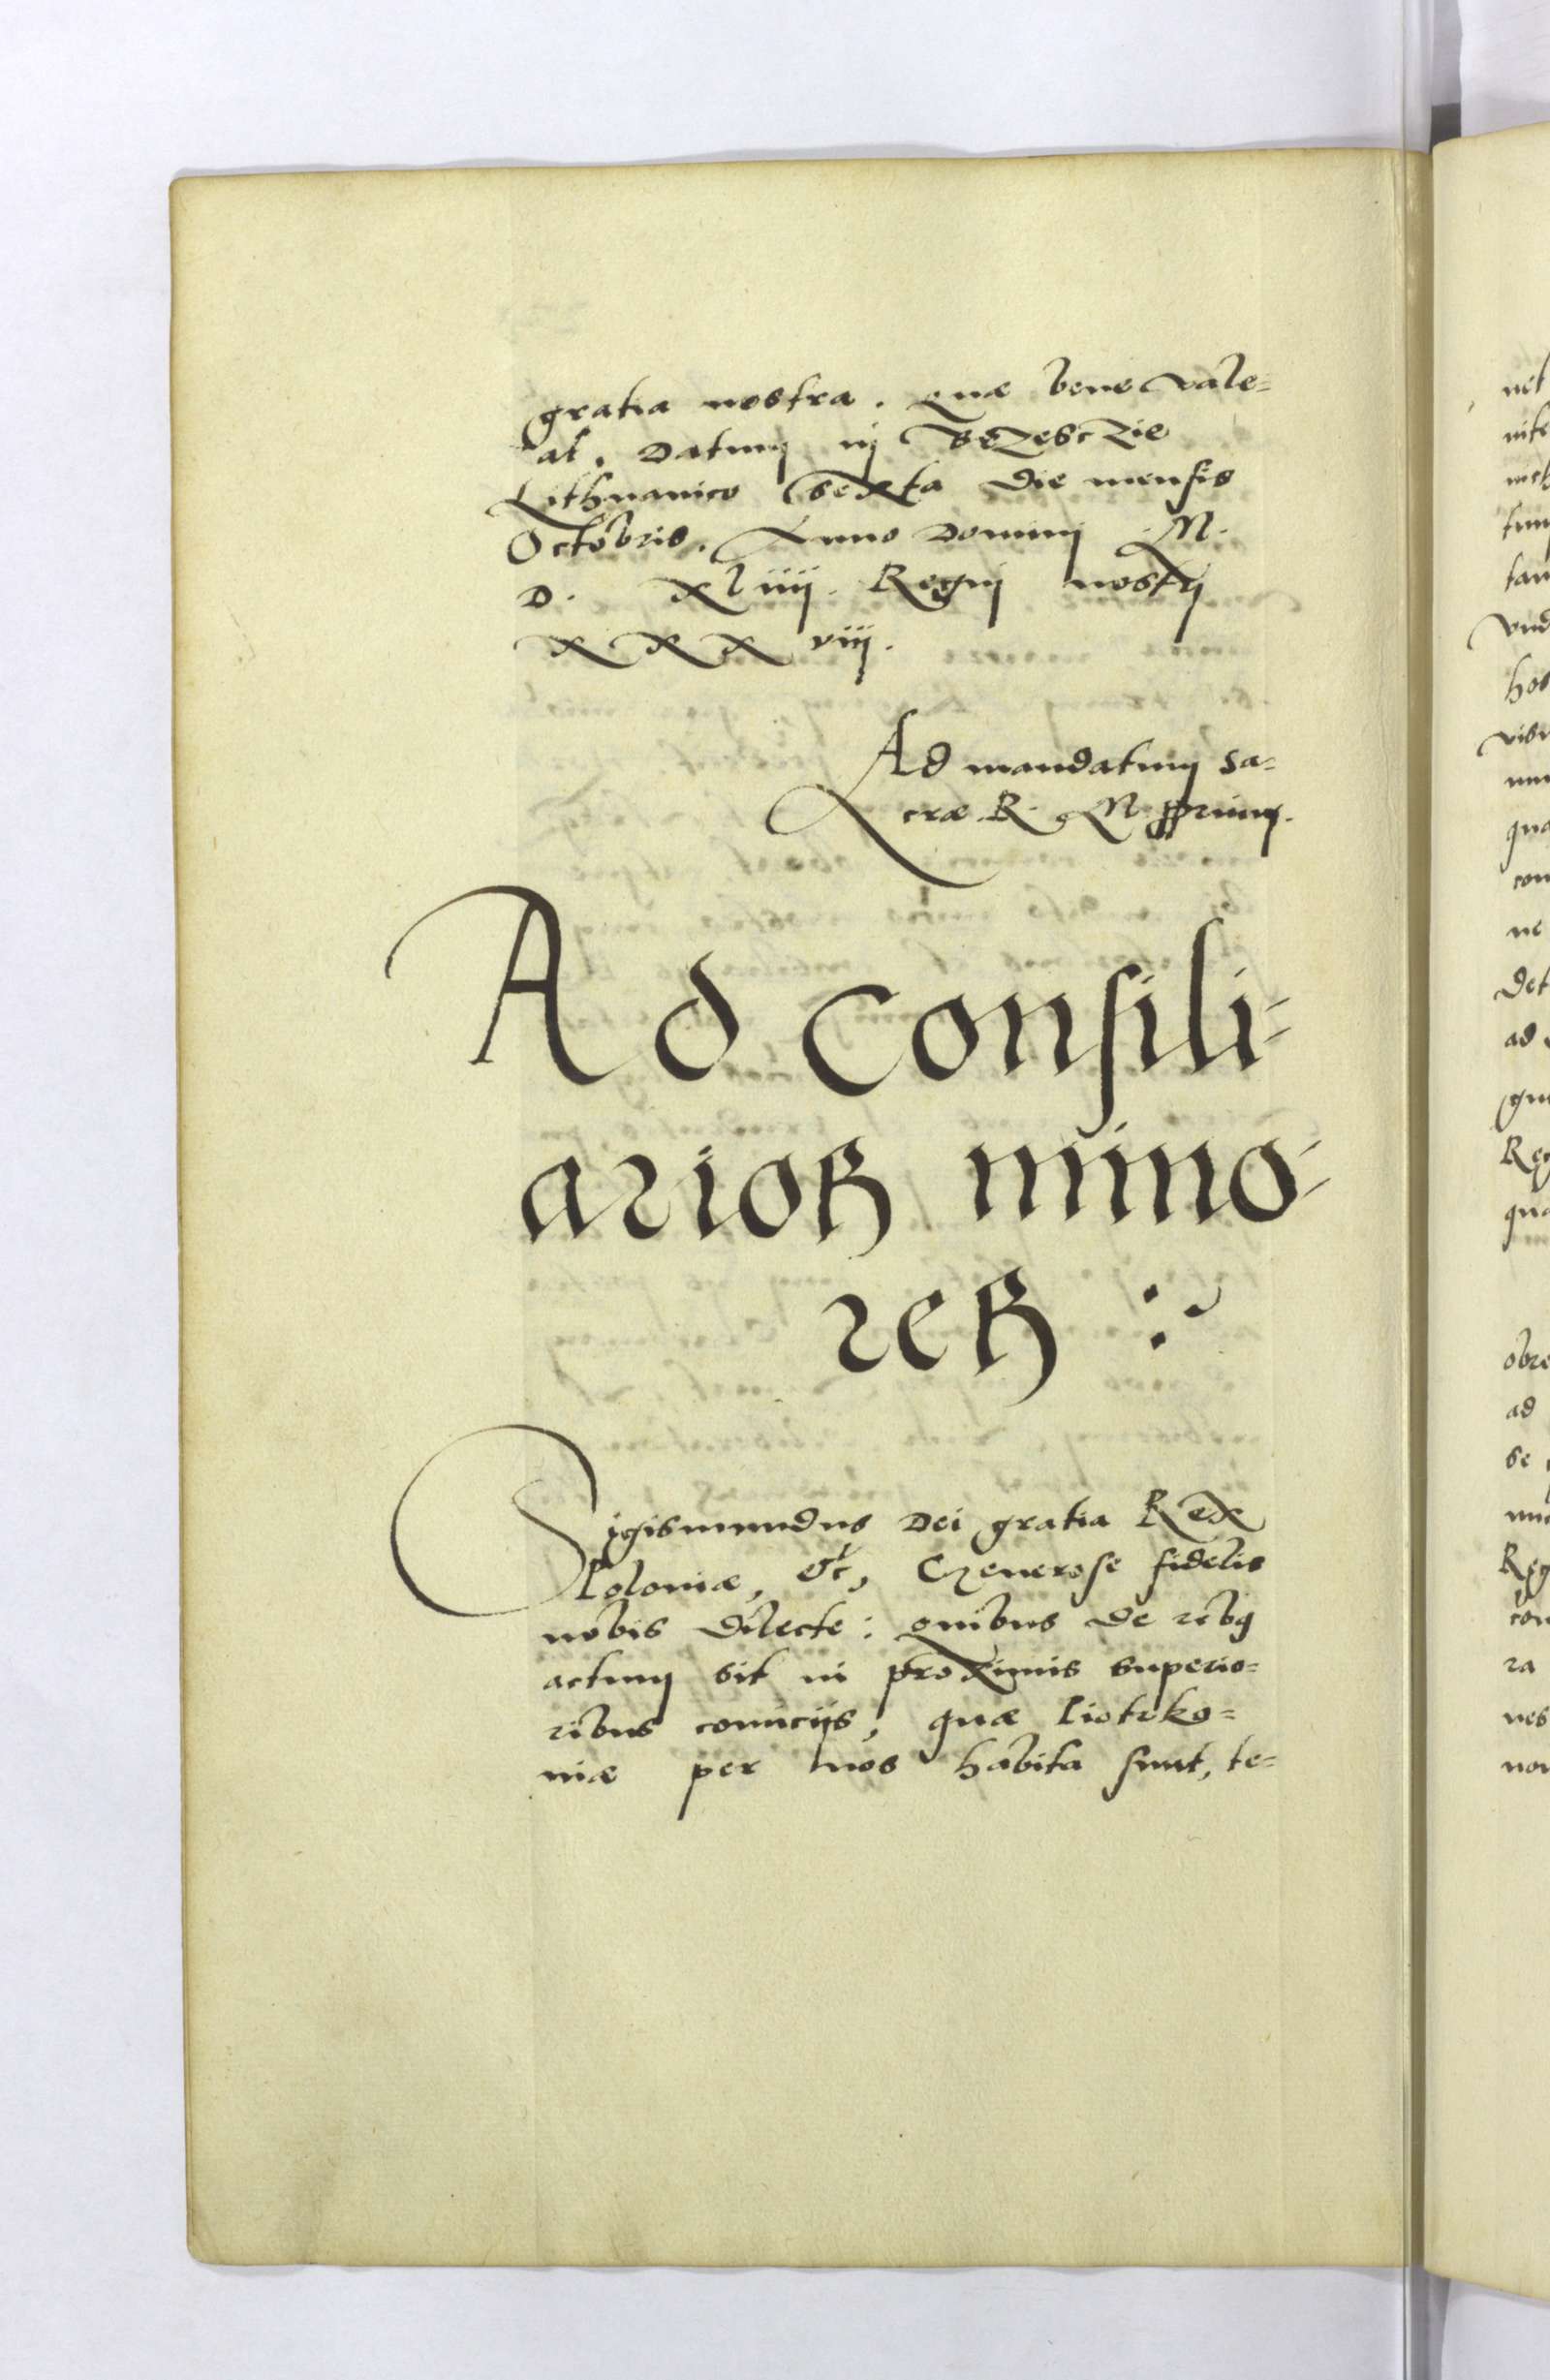 gratia nostra. quæ bene vale=
at. Datum in Brzesczie
Lithuanico Sexta die mensis
Octobris. Anno Domini .M.
D. xliiij. Regni nostri
xxxviij.
Ad mandatum sa=
cræ R. M. pprium.
Ad Consili-
arioꝝ mino-
reꝝ
Sigismundus Dei gratia Rex
Poloniæ, &c, Generose fidelis
nobis dilecte: quibus de rebꝰ
actum sit in proximis superio=
ribus comicijs, quæ Piotrko=
niæ per nos habita sunt, te=